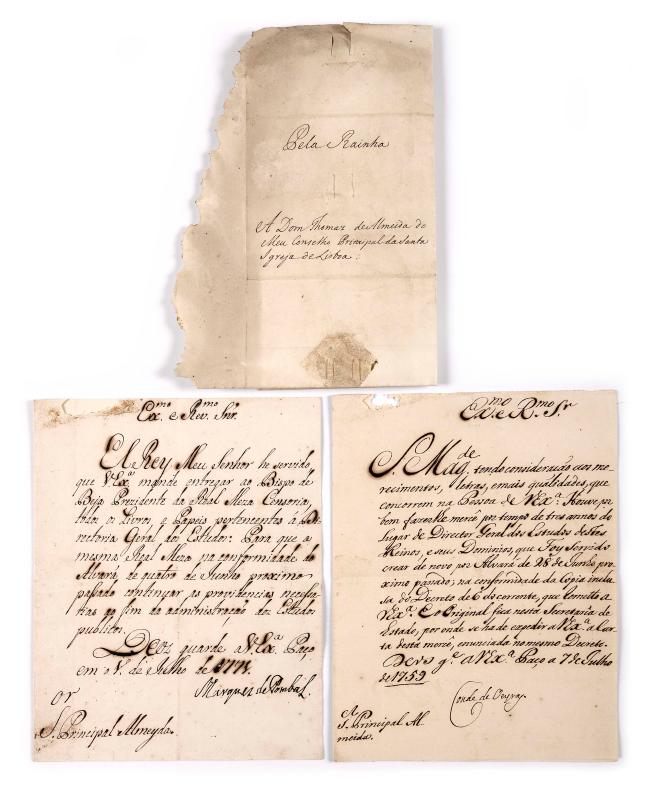 Pela Rainha
A Dom Thomaz de Almeida do
Meu Conselho Principal da Santa
Igreja de Lisboa.
Ex.mo e Rev.mo Snr.
El Rey Meu Senhor he servido,
que VEx.a mande entregar ao Bispo de
Beja Prezidente da Real Meza Censoria,
todos os Livros, e Papeis pertencentes á Di-
rectoria Geral dos Estudos: Para que a
mesma Real Meza na conformidade do
Alvará de quatro de Junho proximo
passado continuar as providencias necessa-
rias ao fim da administração dos Estudos
publicos.
Deos guarde a VEx.a Paço,
em de Julho de 1771.
Marquez de Pombal.
S. Principal Almeyda.
Ex.mo e R.mo S.r
S. Mag.de tendo consideração aos me-
recimentos, letras, e mais qualidades, que
concorrem na Pessoa de VEx.a Houve por
bem fazerlhe mercê por tempo de tres annos do
Lugar de Director Geral dos Estudos destes
Reinos, e seus Dominios, que Foy Servido
crear de novo por Alvará de 28 de Junho pro-
ximo passado; na conformidade da Copia inclu-
sa do Decreto de 6 do corrente, que remetto a
VEx.a E o Original fica nesta Secretaria de
Estado, por onde se ha de expedir a VEx.a a Car-
ta desta mercê, enunciada no mesmo Decreto.
Deos g.e a VEx.a Paço a 7 de Julho
de 1759
Conde de Oeyras.
S. Principal Al
meida.